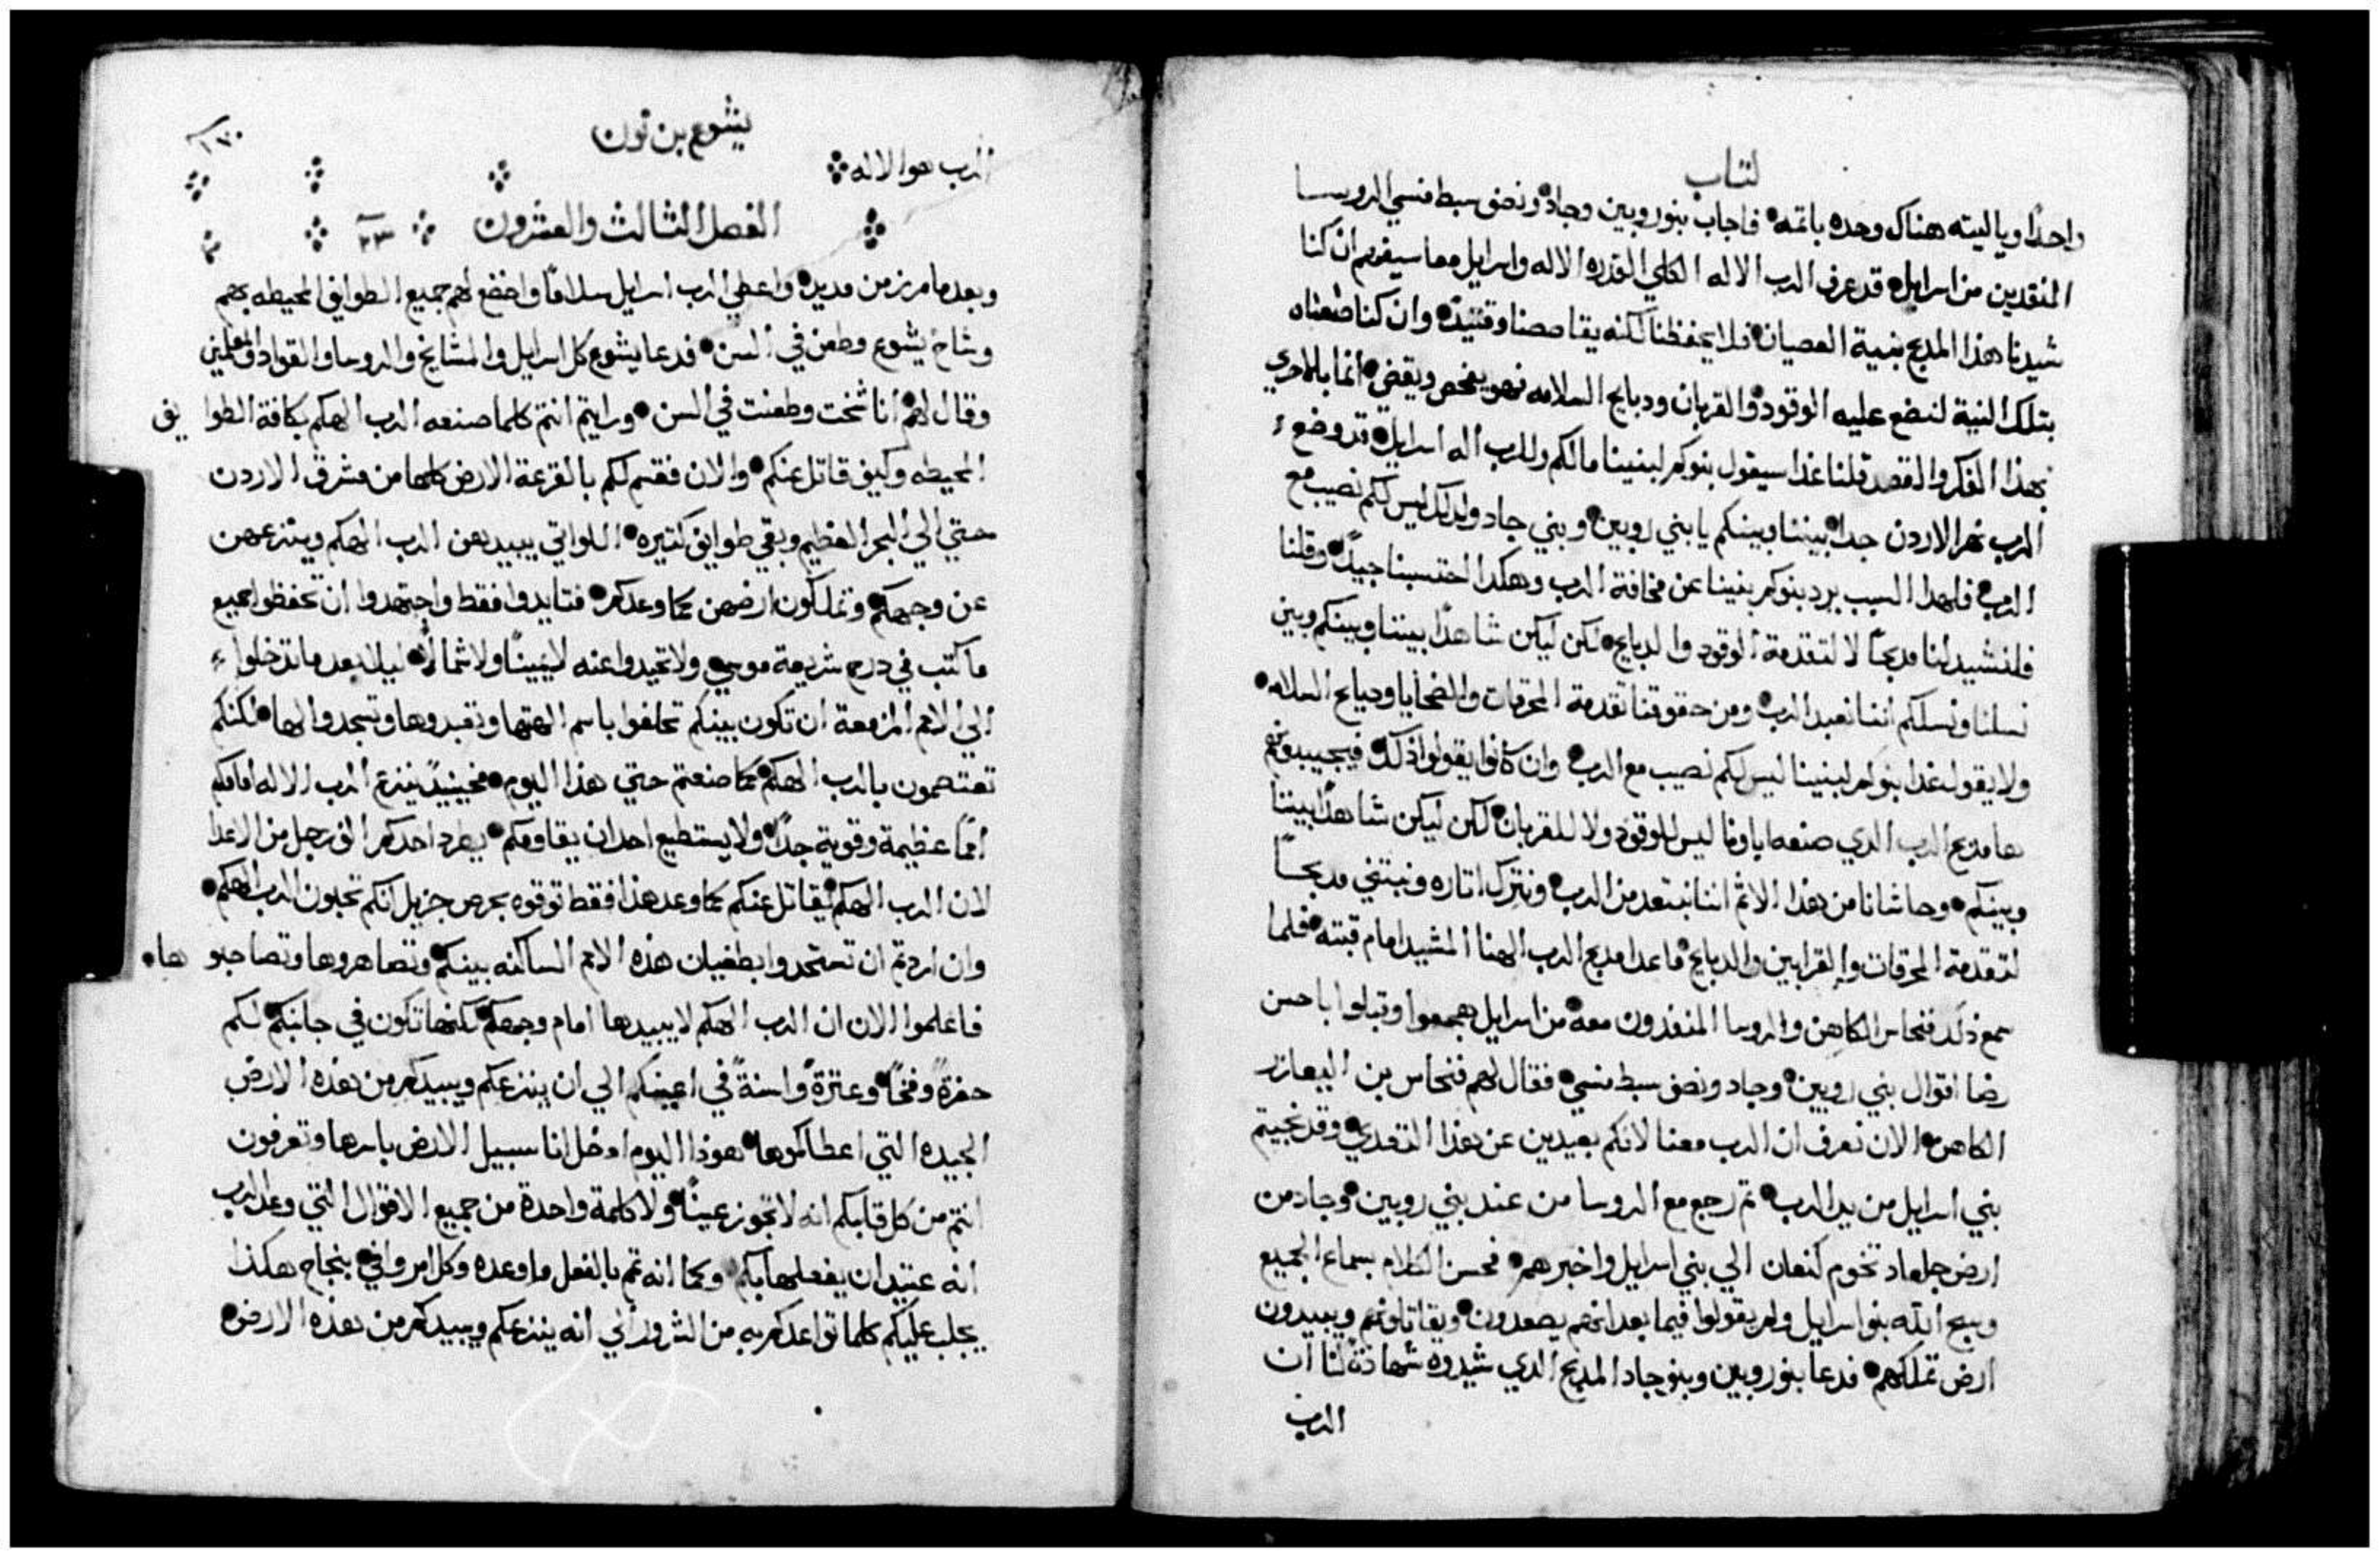 كتاب
واحدًا وياليته هناك وحده باثمه فاجاب بنوروبين وجاد ونصف سبط منسي الروسا
المنقدين من اسرايل قد عرف الرب الاله الكلي القدره الاله واسرايل معا سيفهم ان كنا
شيدنا هذا المدبح بنية العصيان فلا يحفظنا لكنه يقاصصنا وقتيدٍ وان كنا صنعناه
بتلك النية لنضع عليه الوقود والقربان ودبايح السلامه فهو يفحص ويقضي انما بالاحري
بهذا الفكر والقصد قلنا غدا سيقول بنوكم لبنينا مالكم وللرب اله اسرايل قد وضع
الرب نهر الاردن حدا بيننا وبينكم يا بني روبين وبني جاد ولدلك ليس لكم نصيب مع
الرب فلهدا السبب يرد بنوكم بنينا عن مخافة الرب وهكدا احتسبنا جيدًا وقلنا
فلنشيد لنا مدبحًا لا لتقدمة الوقود والدبايح لكن ليكن شاهدًا بيننا وبينكم وبين
نسلنا ونسلكم اننا نعبد الرب ومن حقوقنا تقدمة المحرقات والضحايا ودبايح السلامه
ولا يقول غدا بنوكم لبنينا ليس لكم نصيب مع الرب وان كانوا يقولوا ذلك فيجيبونهم
ها مدبح الرب الدي صنعه اباونا ليس للوقود ولا للقربان لكن ليكن شاهدًا بيننا
وبينكم وحاشانا من هذا الاثم اننا نبتعد من الرب ونترك اثاره ونبتني مدبحًا
لتقدمة المحرقات والقرابين والدبايح ماعدا مدبح الرب الهنا المشيد امام قبته فلما
سمع ذلك فنحاس الكاهن والروسا المنفدون معه من اسرايل هجعوا وقبلوا باحسن
رضا اقوال بني روبين وجاد ونصف سبط منسي فقال لهم فنحاس بن اليعازر
الكاهن الان نعرف ان الرب معنا لانكم بعيدين عن هذا التعدي وقد نجيتم
بني اسرايل من يد الرب ثم رجع مع الروسا من عند بني روبين وجاد من
ارض جلعاد تخوم كنعان الي بني اسرايل واخبرهم فحسن الكلام بسماع الجميع
وسبح الله بنو اسرايل ولم يقولوا فيما بعد انهم يصعدون ويقاتلونهم ويبيدون
ارض تملكهم فدعا بنوروبين وبنوجاد المدبح الدي شيدوه شهادة لنا ان
الرب
يشوع بن نون
١٧٠
الرب هو الاله
الفصل الثالث والعشرون ٢٣
وبعد ما مر زمن مديد واعطي الرب اسرايل سلامًا واخضع لهم جميع الطوايف المحيطه بهم
وشاخ يشوع وطعن في السن فدعا يشوع كل اسرايل والمشايخ والروسا والقواد والمعلمين
وقال لهم انا شخت وطعنت في السن ورايتم انتم كلما صنعه الرب الهكم بكافة الطوايف
المحيطه وكيف قاتل عنكم والان فقسم لكم بالقرعة الارض كلها من مشرق الاردن
حتي الي البحر العظيم وبقي طوايف كتيره اللواتي يبيدهن الرب الهكم وينزعهن
عن وجهكم وتملكون ارضهن كما وعدكم فتايدوا فقط واجتهدوا ان تحفظوا جميع
ما كتب في درج شريعة موسي ولا تحيدوا عنه لا يمينًا ولا شمالًا ليلا بعد ما تدخلوا
الي الامم المزمعة ان تكون بينكم تحلفوا باسم الهتها وتعبدوها وتسجدوا لها لكنكم
تعتصمون بالرب الهكم كما صنعتم حتي هذا اليوم فحينيدٍ ينزع الرب الاله امامكم
اممًا عظيمة وقوية جدًا ولا يستطيع احد ان يقاومكم يطرد احدكم الف رجل من الاعدا
لان الرب الهكم يقاتل عنكم كما وعد هذا فقط توقوه بحرص جزيل انكم تحبون الرب الهكم
وان اردتم ان تستحدوا بطغيان هذه الامم الساكنه بينكم وتصاهروها وتصاحبوها
فاعلموا الان ان الرب الهكم لا يبيدها امام وجهكم لكنها تكون في جانبكم لكم
حفرةً وفخًا وعترةً واسنةً في اعينكم الي ان ينزعكم ويبيدكم من هذه الارض
الجيده التي اعطاكموها هوذا اليوم ادخل انا سبيل الارض باسرها وتعرفون
انتم من كل قلبكم انه لا تجوز عبثًا ولا كلمة واحدة من جميع الاقوال التي وعد الرب
انه عتيد ان يفعلها بكم وكما انه تم بالفعل ما وعده وكل امر وافي بنجاح هكذا
يجلب عليكم كلما تواعدكم به من الشرور الي انه ينزعكم ويبيدكم من هذه الارض